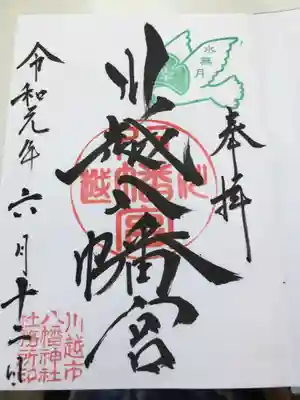 奉拝
水無月
川越八幡宮
令和元年六月十二日
川越市
八幡神社
社務所印